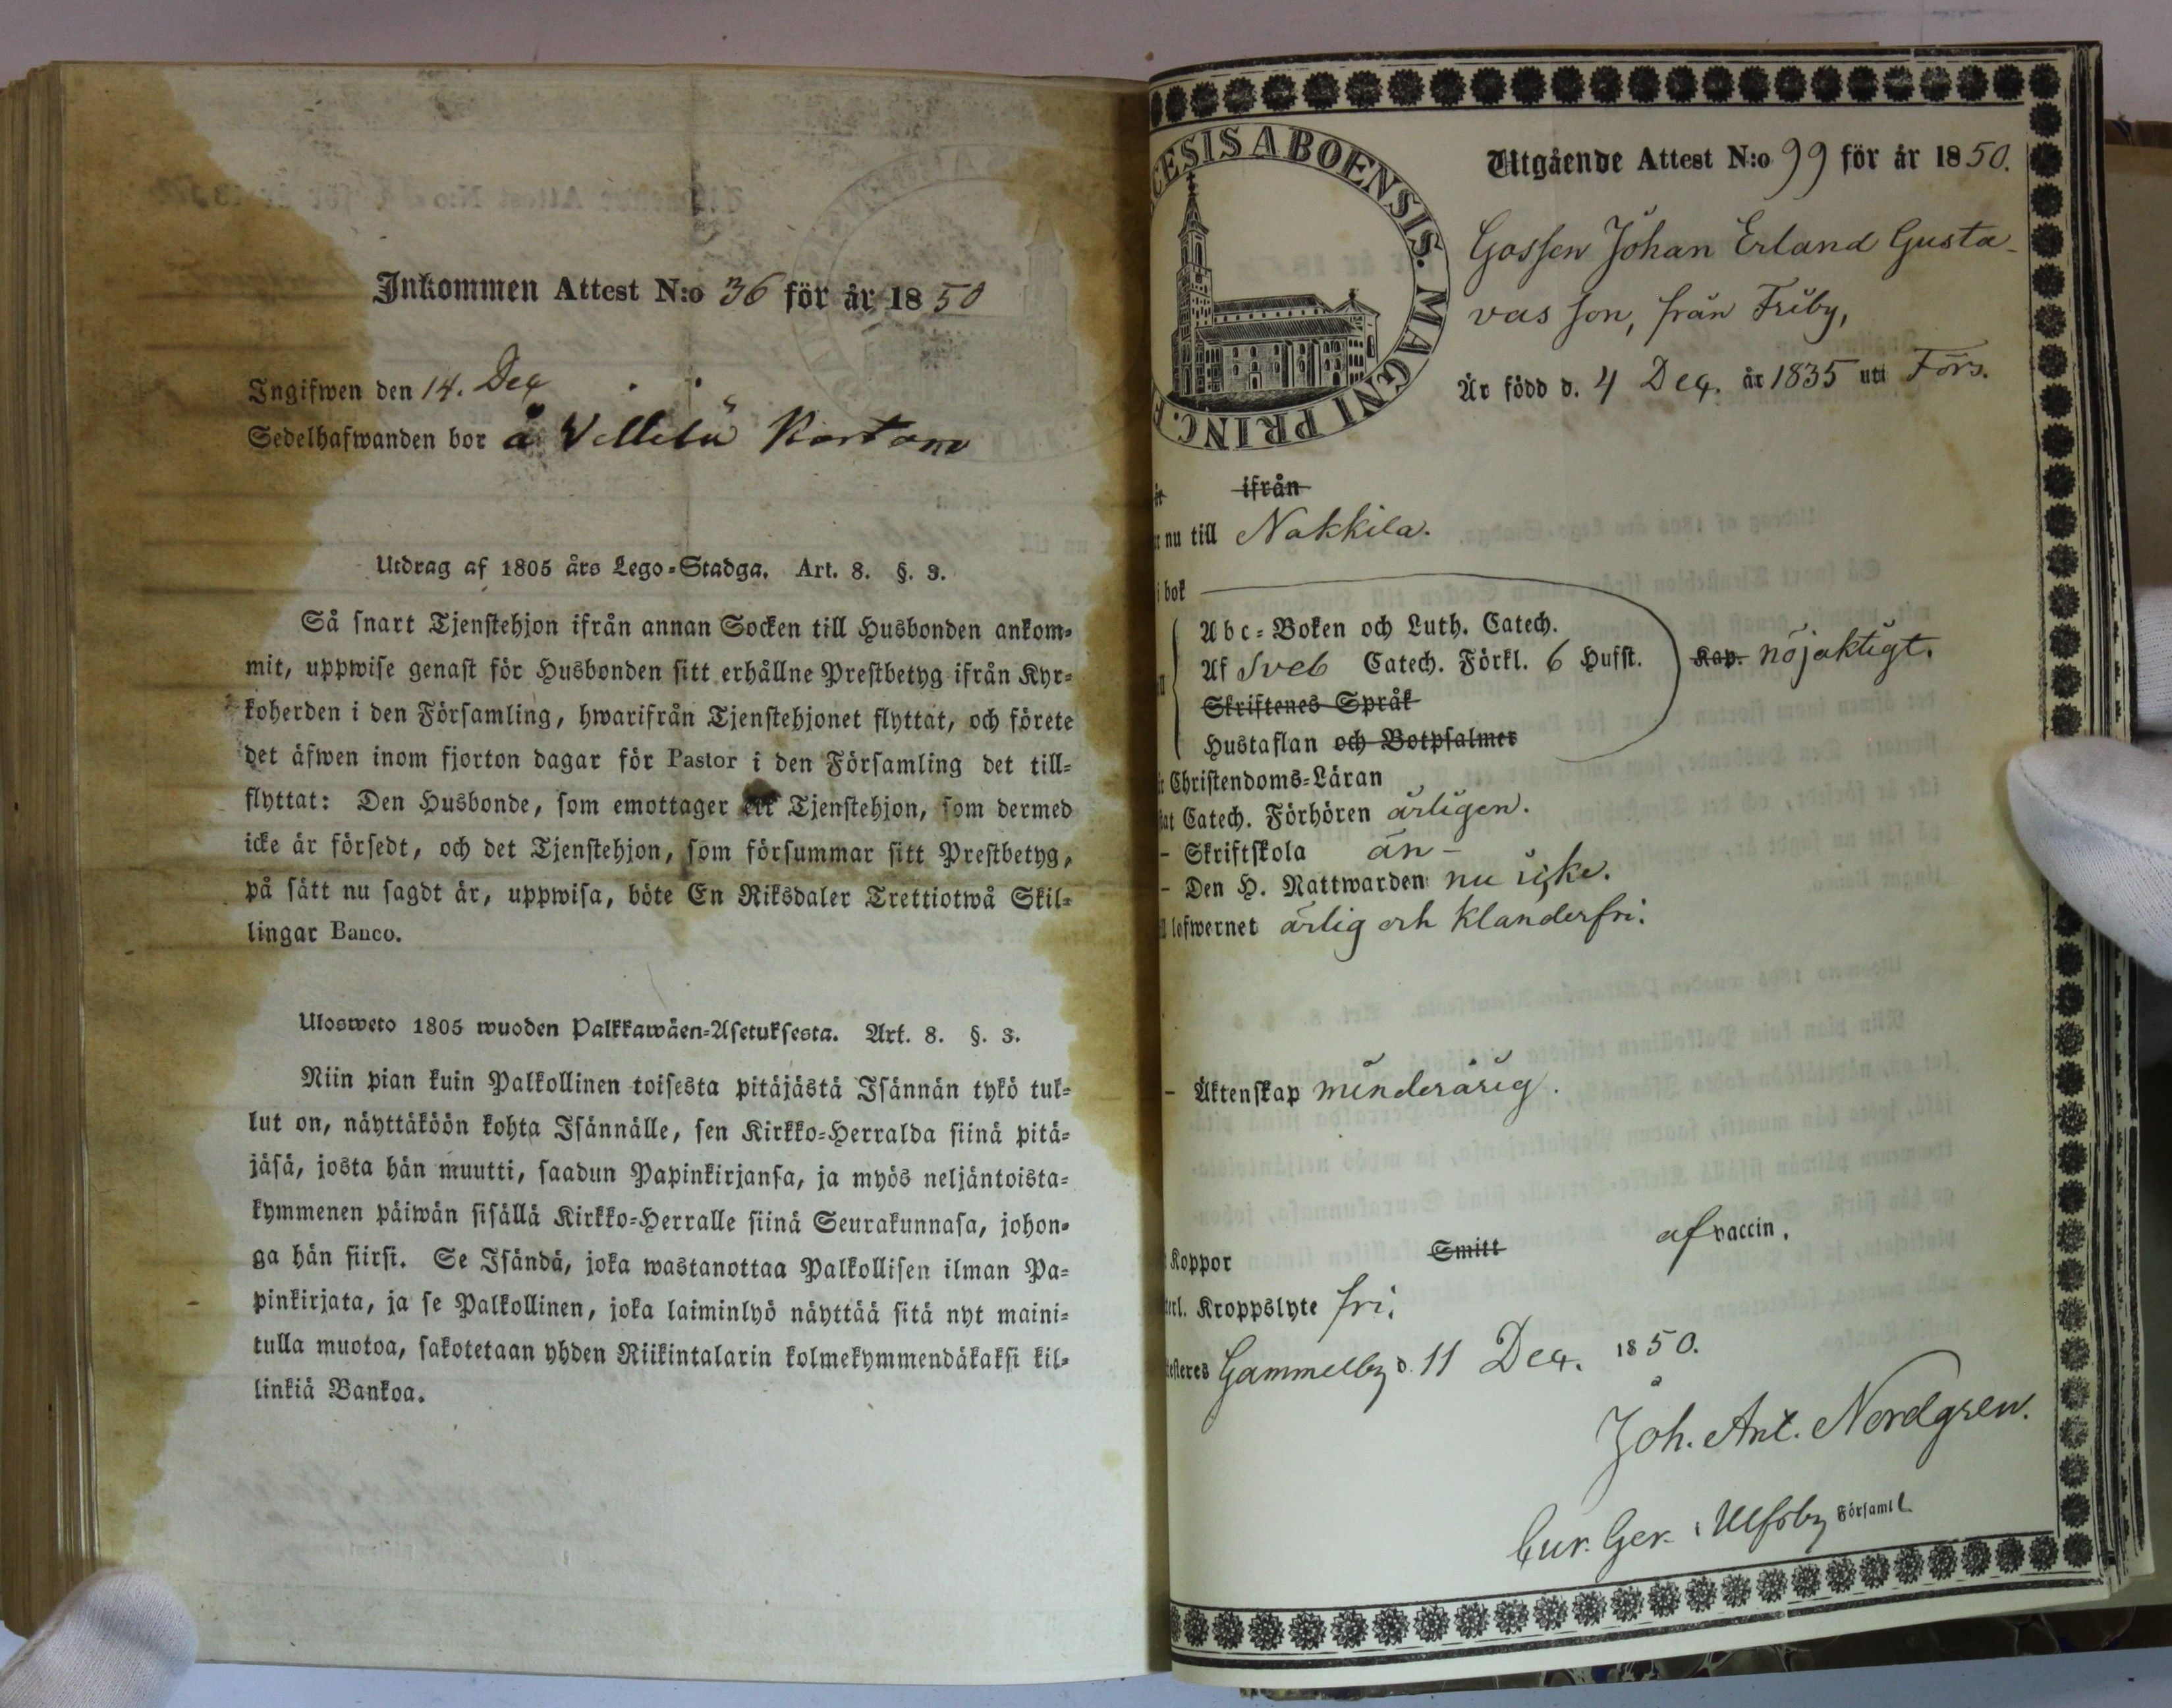 Inkommen Attest N:o 36 för år 1850
Ingifwen den 14. Dec
Sedelhafwanden bor å
Utdrag af 1805 års Lego-Stadga. Art. 8. §. 3.
Så snart Tjenstehjon ifrån annan Socken till Husbonden ankom-
mit, uppwise genast för Husbonden sitt erhållne Prestbetyg ifrån Kyr-
koherden i den Församling, hwarifrån Tjenstehjonet flyttat, och förete
det äfwen inom fjorton dagar för Pastor i den Församling det till-
flyttat: Den Husbonde, som emottager ett Tjenstehjon, som dermed
icke är försedt, och det Tjenstehjon, som försummar sitt Prestbetyg,
på sätt nu sagdt är, uppwisa, böte En Riksdaler Trettiotwå Skil-
lingar Banco.
Ulosweto 1805 wuoden Palkkawäen-Asetuksesta. Art. 8. §. 3.
Niin pian kuin Palkollinen toisesta pitäjästä Isännän tykö tul-
lut on, näyttäköön kohta Isännälle, sen Kirkko-Herralda siinä pitä-
jäsä, josta hän muutti, saadun Papinkirjansa, ja myös neljäntoista-
kymmenen päiwän sisällä Kirkko-Herralle siinä Seurakunnasa, johon-
ga hän siirsi. Se Isändä, joka wastanottaa Palkollisen ilman Pa-
pinkirjata, ja se Palkollinen, joka laiminlyö näyttää sitä nyt maini-
tulla muotoa, sakotetaan yhden Riikintalarin kolmekymmendäkaksi kil-
linkiä Bankoa.
CESIS ABOENSIS. MAGNI PRINC. F
Utgående Attest N:o 99 för år 1850.
Gossen Johan Erland Gusta-
vas son, från Friby,
Är född d. 4 Dec. år 1835 uti Förs.
ifrån
nu till Nakkila.
i bok
Abc-Boken och Luth. Catech.
Af Sveb Catech. Förkl. 6 Hufst. Kap. nöjaktigt.
Skriftenes Språk
Hustaflan och Botpsalmer
Christendoms-Läran
Catech. Förhören årligen.
- Skriftskola än-
- Den H. Nattwarden nu icke.
lefwernet ärlig och klanderfri.
- Äktenskap minderårig.
Koppor Smitt af vaccin.
Kroppslyte fri.
Gammelby d. 11 Dec. 1850.
Joh. Ant. Nordgren.
Cur. Ger. i Ulfsby Församl.